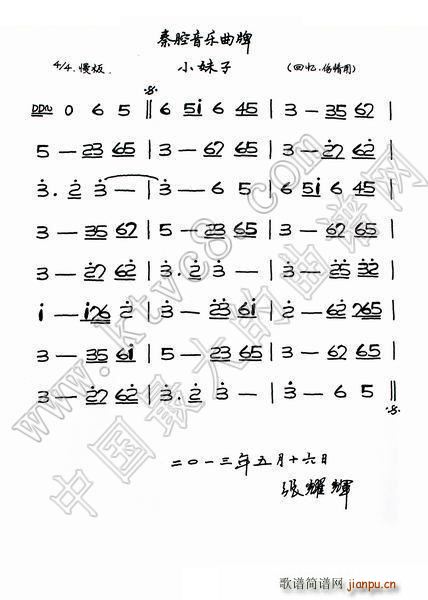 秦腔音乐曲牌
4/4.慢板. 小妹子 (回忆.伤情用)
0 6 5 ‖ 6 5i 6 45 | 3 — 35 62 |
5 — 23 65 | 3 — 62 65 | 3̇ — 2̇7 62̇ |
3̇. 2̇ 3̇ — | 3̇ — 6 5 | 6 5i 6 45 |
3 — 35 62 | 5 — 23 65 | 3 — 62 65 |
3̇ — 2̇7 62̇ | 3̇. 2̇ 3̇ — | 3̇ — 2̇5 3̇2̇ |
i — i26 2̇ | 3̇ — 2̇3̇ 6i | 2̇ — 62̇ 265 |
3 — 35 6i | 5 — 23 65 | 3 — 62 65 |
3̇ — 2̇7 62̇ | 3̇. 2̇ 3̇ — | 3̇ — 6 5 ‖
二〇一三年五月十六日
张耀辉
www.ktvc8.com
中国最大的曲谱网
歌谱简谱网
jianpu.cn